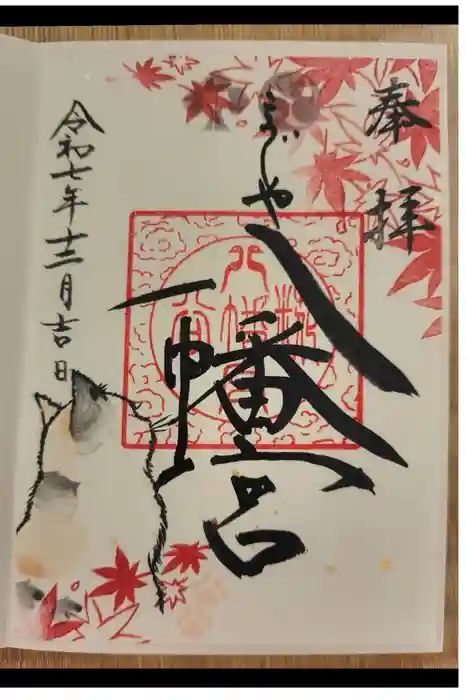 奉拝
ふじや
八幡宮
令和七年十二月吉日